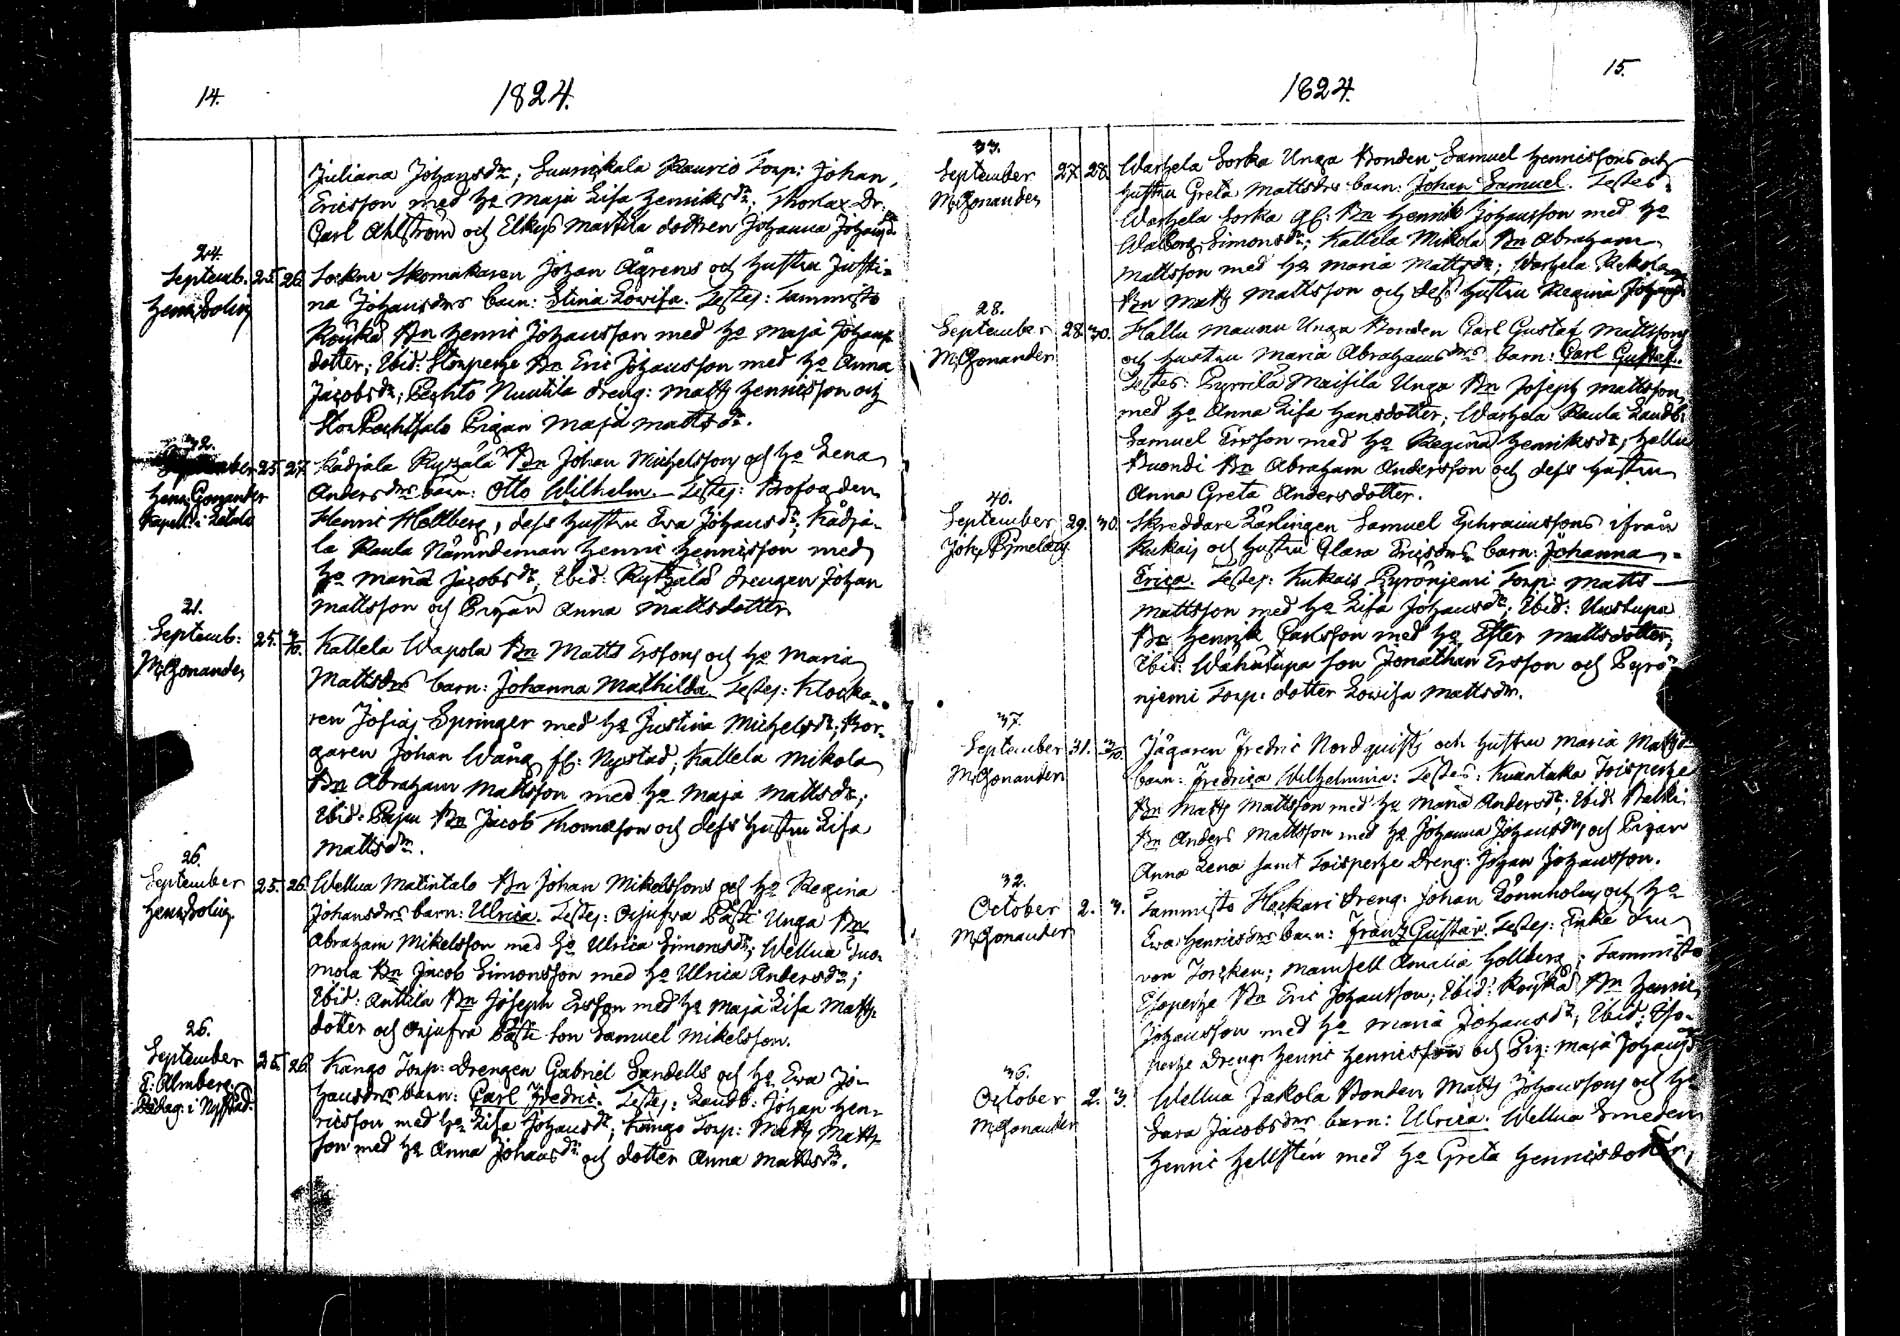 14.
1824.
Juliana Johansdr; Suurikkala Raurio Torp: Johan
Ericsson med h:o Maja Lisa Henriksdr; Thorlax Dr:
Carl Ahlström och Elkys Martila dottren Johanna Johansdr
24.
Septemb. 25. 26. Sockne Skomakaren Johan Ågrens och hustru Justi-
na Johansdrs barn: Stina Lovisa. Testes: Tammisto
Röykkä Bn Henric Johansson med h:o Maja Johans-
dotter; Ibid: Storperhe Bn Eric Johansson med h:o Anna
Jacobsdr; Pechto Nuutila dreng: Matts Henricsson och
Pigan Maja Mattsdr.
32.
September 25. 27. Kådjala Bn Johan Michelssons och h:o Lena
Andersdrs barn: Otto Wilhelm. Testes:
Henr: Gonander
Henric Hellberg, dess hustru Eva Johansdr; Kådja-
la Paula Nämndeman Henric Henricsson med
h:o Maria Jacobsdr; Ibid: drengen Johan
Mattsson och Pigan Anna Mattsdotter
21.
Septemb: 25. Kallela Wapola Bn Matts Ersons och h:o Maria
M: Gonander
Mattsdrs barn: Johanna Mathilda. Testes: Klocka-
ren Josias Springer med h:o Justina Michelsdr; Bor-
garen Johan Wång fr: Nystad; Kallela Mikola
Bn Abraham Mattsson med h:o Maja Mattsdr;
Ibid: Paju Bn Jacob Thomasson och dess hustru Lisa
Mattsdr.
26.
September 25. 26. Wellua Matintalo Bn Johan Mikelssons och h:o Regina
Johansdrs barn: Ulrica. Testes: Unga Bn
Abraham Mikelsson med h:o Ulrica Simonsdr; Wellua Tuo-
mola Bn Jacob Simonsson med h:o Ulrica Andersdr;
Ibid: Anttila Bn Joseph Ersson med h:o Maja Lisa Matts-
dotter och son Samuel Mikelsson.
26.
September 25. 26. Kango Torp: Drengen Gabriel Sandells och h:o Eva Jo-
E: Almberg
Pædag: i Nystad.
hansdrs barn: Carl Fredric. Testes: Landb: Johan Hen-
ricsson med h:o Lisa Johansdr; Kango Torp: Matts Matts-
son med h:o Anna Johansdr och dotter Anna Mattsdr.
15.
1824.
33.
September 27. 28. Warhela Sorka Unga Bonden Samuel Henricssons och
M: Gonander
hustru Greta Mattsdrs barn: Johan Samuel. Testes:
Warhela Sorka gl: Bn Henric Johansson med h:o
Walborg Simonsdr; Kallela Mikola Bn Abraham
Mattsson med h:o Maria Mattsdr; Warhela
Bn Matts Mattsson och dess hustru Regina Johansdr
28.
September 28. 30. Hallu Maunu Unga Bonden Carl Gustaf Mattssons
M: Gonander
och hustru Maria Abrahamsdrs barn: Carl Gustaf.
Testes: Pyrrilä Maisila Unga Bn Joseph Mattsson
med h:o Anna Lisa Hansdotter; Warhela Paula Landb:
Samuel Ersson med h:o Regina Henriksdr; Hallu
Ruondi Bn Abraham Andersson och dess hustru
Anna Greta Andersdotter.
40.
September 29. 30. Skreddare Lärlingen Samuel Ephraimssons ifrån
Kukais och hustru Clara Ericsdrs barn: Johanna
Erica. Testes: Kukais Pyrönjemi Torp: Matts
Mattsson med h:o Lisa Johansdr; Ibid: Uustupa
Bn Henrik Carlsson med h:o Ester Mattsdotter;
Ibid: Wähätupa son Jonathan Ersson och Pyrö-
njemi Torp: dotter Lovisa Mattsdr.
37.
September 31. 3/10. Jägaren Fredric Nordquists och hustru Maria Mattsdrs
M: Gonander
barn: Fredrica Wilhelmina. Testes:
Bn Matts Mattsson med h:o Maria Andersdr; Ibid:
Bn Anders Mattsson med h:o Johanna Johansdr, och Pigan
Anna Lena samt Dreng: Johan Johansson.
32.
October 2. 3. Tammisto Hackari Dreng: Johan Lönnholms och h:o
M: Gonander
Eva Henricsdrs barn: Frantz Gustav. Testes: Enke Fru
von ; Mamsell Amalia Hollberg; Tammisto
Bn Eric Johansson; Ibid: Röykkä Bn Henric
Johansson med h:o Maria Johansdr; Ibid:
dreng Henric Henricsson och Pig: Maja Johansdr
36.
October 2. 3. Wellua Jakola Bonden Matts Johanssons och h:o
M: Gonander
Sara Jacobsdrs barn: Ulrica. Wellua Smeden
Henric Hellstén med h:o Greta Henricsdotter,